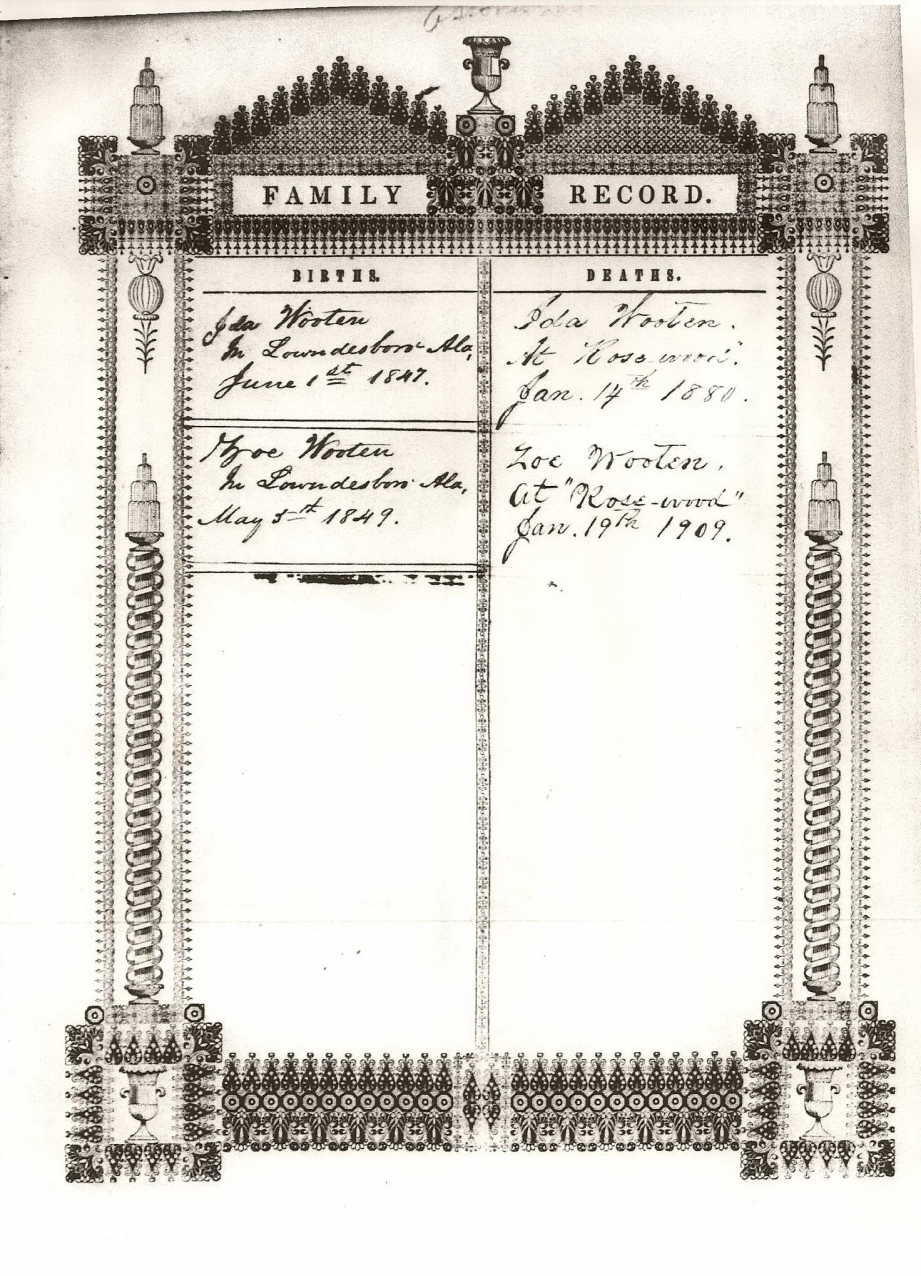 FAMILY RECORD.
BIRTHS.
Ida Wooten
In Lowndesboro Ala,
June 1st 1847.
Zoe Wooten
In Lowndesboro Ala,
May 5th 1849.
DEATHS.
Ida Wooten.
At "Rose-wood".
Jan. 14th 1880.
Zoe Wooten.
At "Rose-wood"
Jan. 19th 1909.